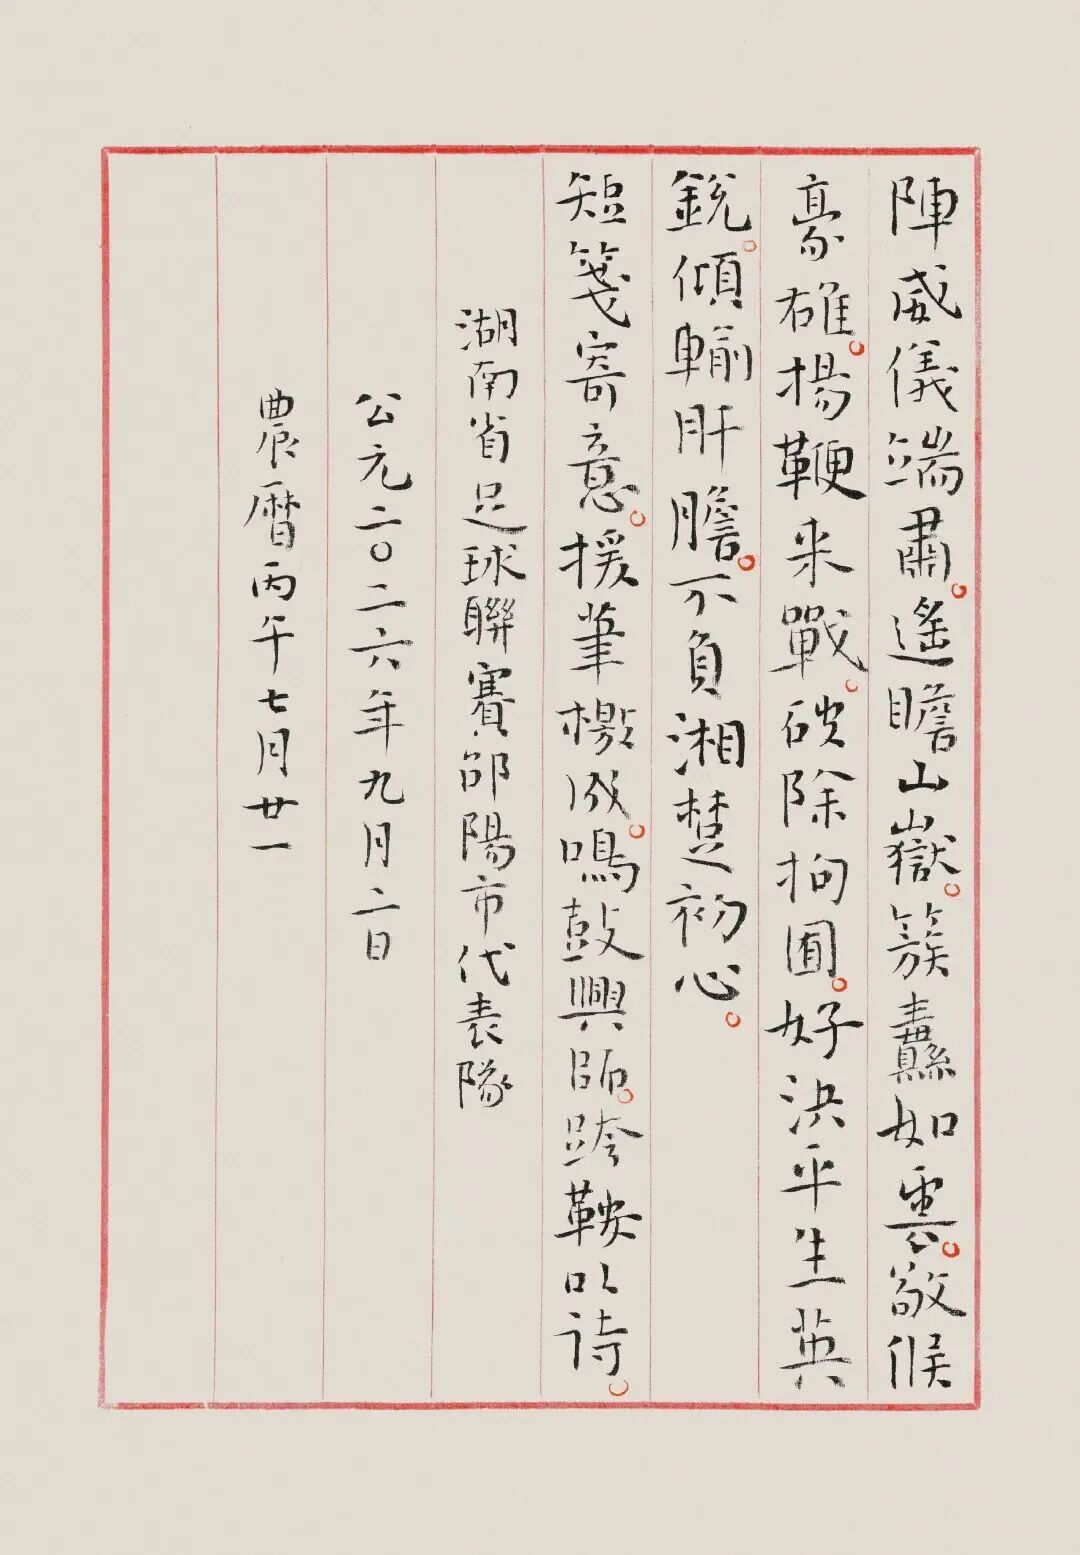 陣威儀端肅。遙瞻山嶽。簇纛如雲。敬候
豪雄。揚鞭来戰。破除拘囿。好決平生英
銳。傾輸肝膽。不負湘楚初心。
短箋寄意。援筆檄成。鳴鼓興師。跨鞍以詩。
湖南省足球聯賽邵陽市代表隊
公元二〇二六年九月二日
農暦丙午七月廿一